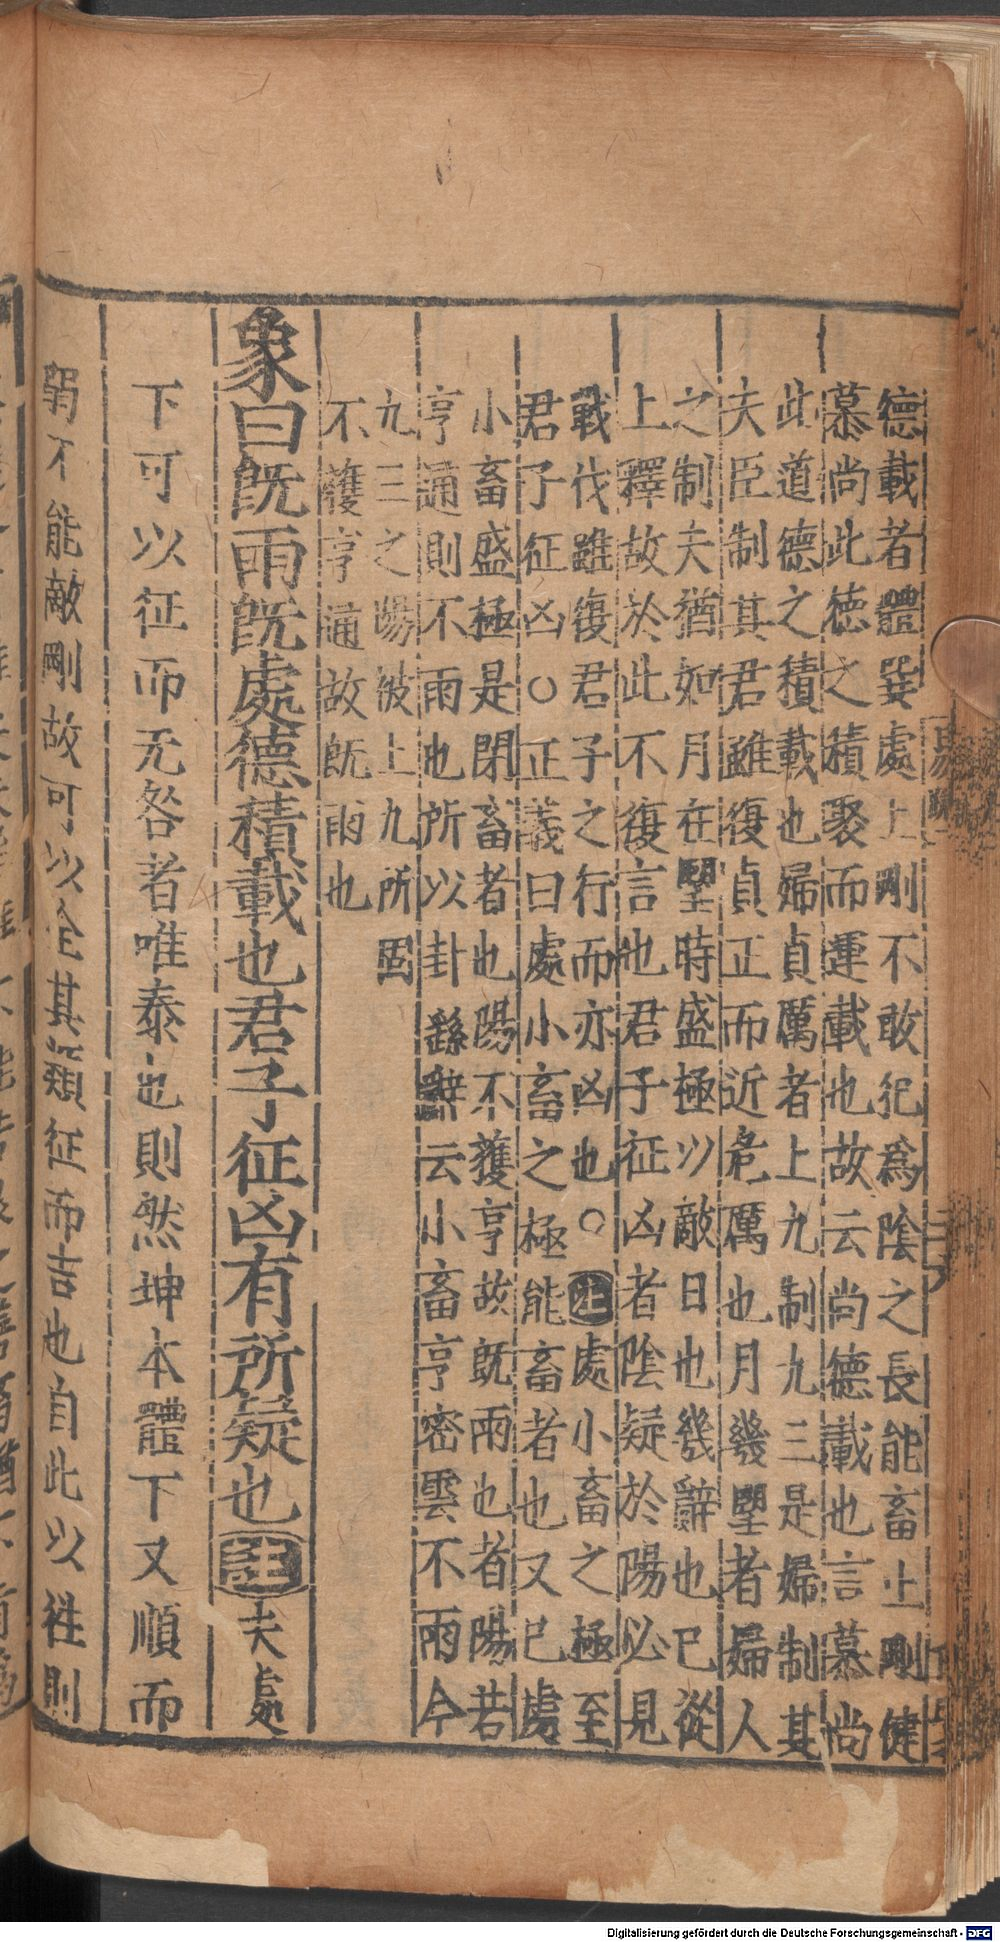 德載者體巽處上剛不敢犯爲陰之長能畜止剛健
慕尚此德之積聚而運載也故云尚德載也言慕尚
此道德之積載也婦貞厲者上九制九三是婦制其
夫臣制其君雖復貞正而近危厲也月幾朢者婦人
之制夫猶如月在朢時盛極以敵日也幾辭也已從
上釋故於此不復言也君子征凶者陰疑於陽必見
戰伐雖復君子之行而亦凶也○註處小畜之極至
君子征凶○正義曰處小畜之極能畜者也又已處
小畜盛極是閉畜者也陽不獲亨故旣雨也者陽若
亨通則不雨也所以卦繇辭云小畜亨密雲不雨今
九三之陽被上九所固
不獲亨通故旣雨也
象曰旣雨旣處德積載也君子征凶有所疑也註夫處
下可以征而无咎者唯泰也則然坤本體下又順而
弱不能敵剛故可以全其類征而吉也自此以往則
Digitalisierung gefördert durch die Deutsche Forschungsgemeinschaft - DFG